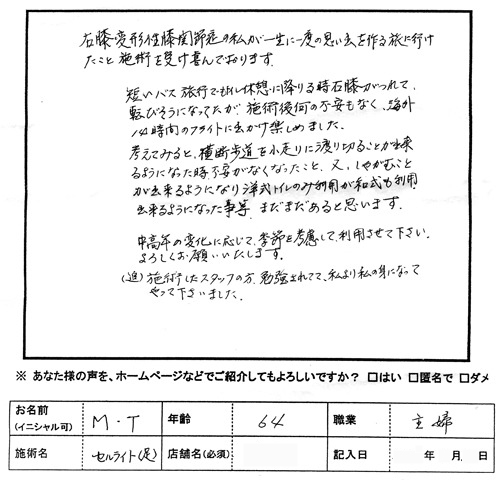 右膝変形性膝関節症の私が一生に一度の思い出を作る旅に行け
たこと施術を受け喜んでおります。
短いバス旅行でもトイレ休憩に降りる時右膝がつれて、
転びそうになってたが施術後何の不安もなく、海外
14時間のフライトに出かけ楽しめました。
考えてみると、横断歩道を小走りに渡り切ることが出来
るようになった時不安がなくなったこと、又、しゃがむこと
が出来るようになり洋式トイレのみ利用が和式も利用
出来るようになった事等、まだまだあると思います。
中高年の変化に応じて、季節を考慮して利用させて下さい。
よろしくお願いいたします。
(追)施術したスタッフの方、勉強されてて、私より私の身になって
やって下さいました。
※ あなた様の声を、ホームページなどでご紹介してもよろしいですか? □はい □匿名で □ダメ
お名前(イニシャル可) M・T 年齢 64 職業 主婦
施術名 セルライト(足) 店舗名(必須) 記入日 年 月 日